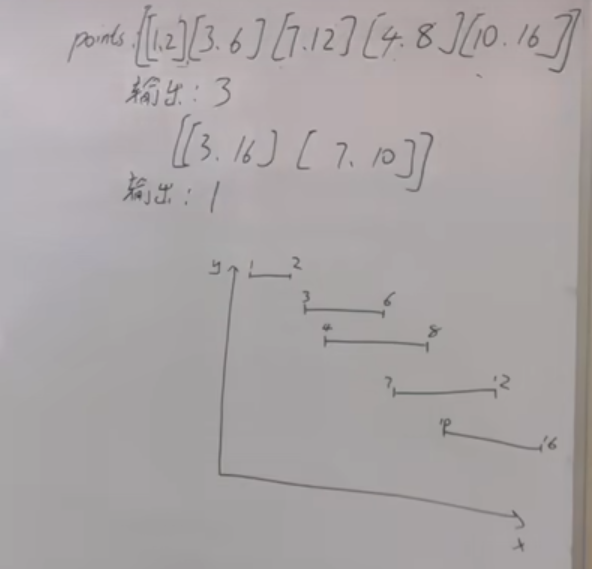 points:[[1.2][3.6][7.12][4.8][10.16]]
输出:3
[[3.16][7.10]]
输出:1
y 1 2
3 6
4 8
7 12
10 16
x